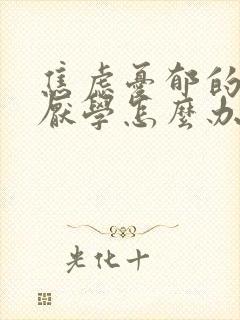 焦虑憂郁的
厭學怎麼办
光化十